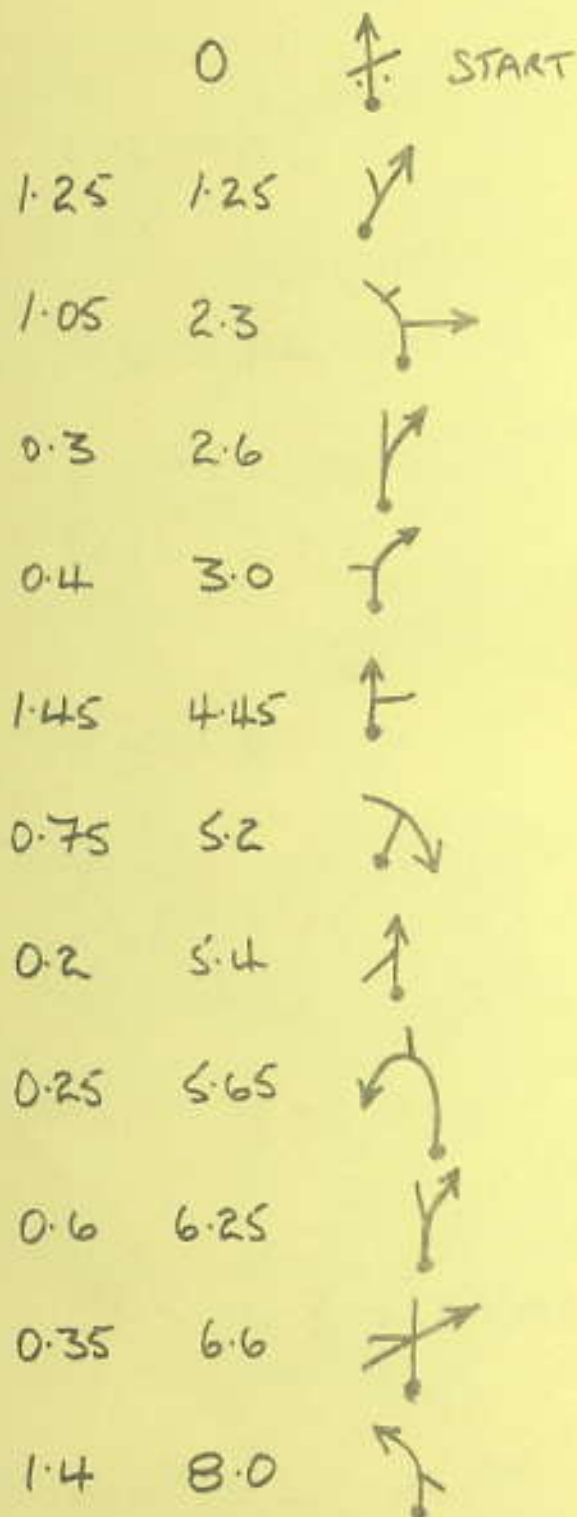 0 START
1.25 1.25
1.05 2.3
0.3 2.6
0.4 3.0
1.45 4.45
0.75 5.2
0.2 5.4
0.25 5.65
0.6 6.25
0.35 6.6
1.4 8.0